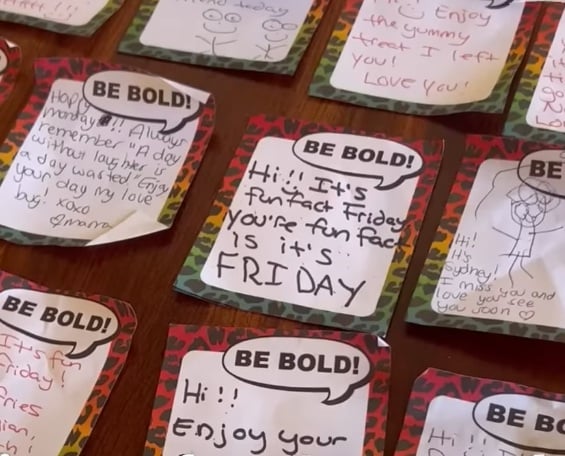 Enjoy
the yummy
treat I left
you!
LOVE YOU!
BE BOLD!
Happy
monday!!! Always
remember "A day
without laughter is
a day wasted" Enjoy
your day my love
bug! xoxo
mama
BE BOLD!
Hi!! It's
fun fact Friday
you're fun fact
is it's
FRIDAY
BE
Hi!
It's
Sydney!
I miss you and
love you see
you soon
BE BOLD!
It's fun
Friday!
Fries
BE BOLD!
Hi!!
Enjoy your
BE BO
Hi!!